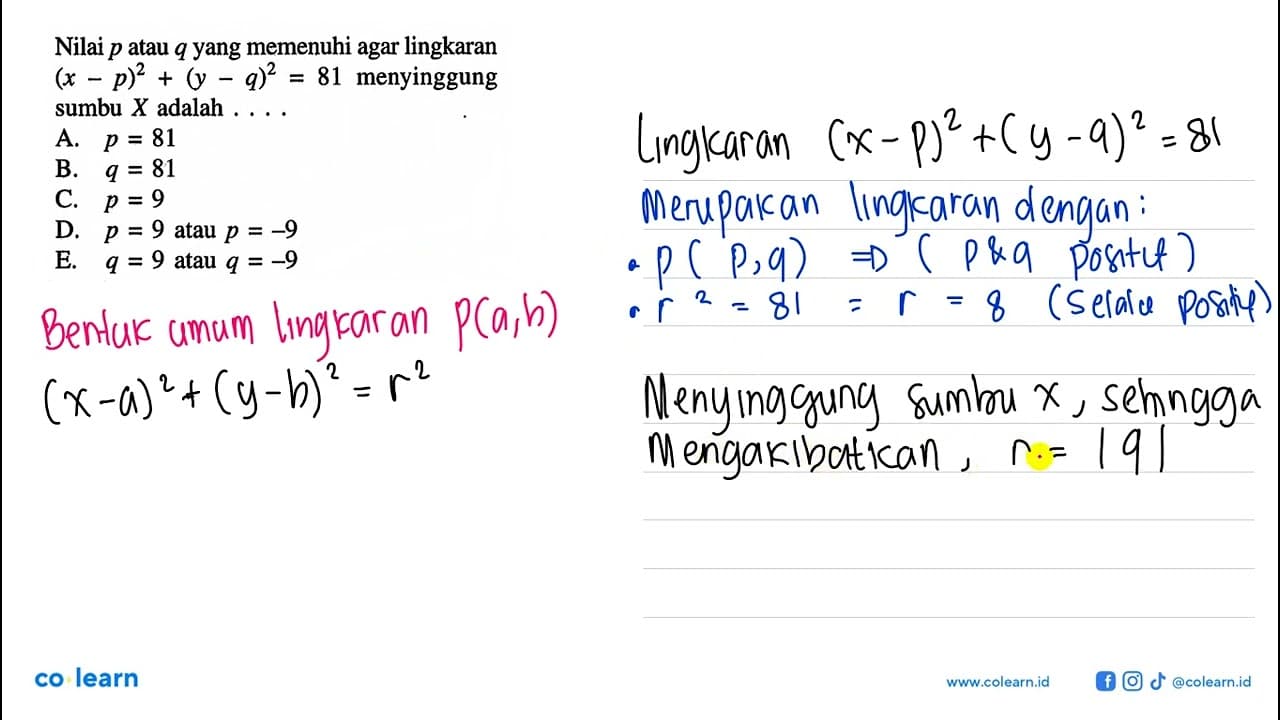 Nilai p atau q yang memenuhi agar lingkaran
(x – p)² + (y – q)² = 81 menyinggung
sumbu X adalah . . . .
A. p = 81
B. q = 81
C. p = 9
D. p = 9 atau p = –9
E. q = 9 atau q = –9
Bentuk umum lingkaran P(a,b)
(x-a)² + (y-b)² = r²
Lingkaran (x-p)² + (y-q)² = 81
Merupakan lingkaran dengan:
• P( P,q) => ( P & q positif )
• r² = 81 = r = 8 (Selalu positif)
Menyinggung sumbu x, sehingga
Mengakibatkan, r = |q|
co learn
www.colearn.id
@colearn.id